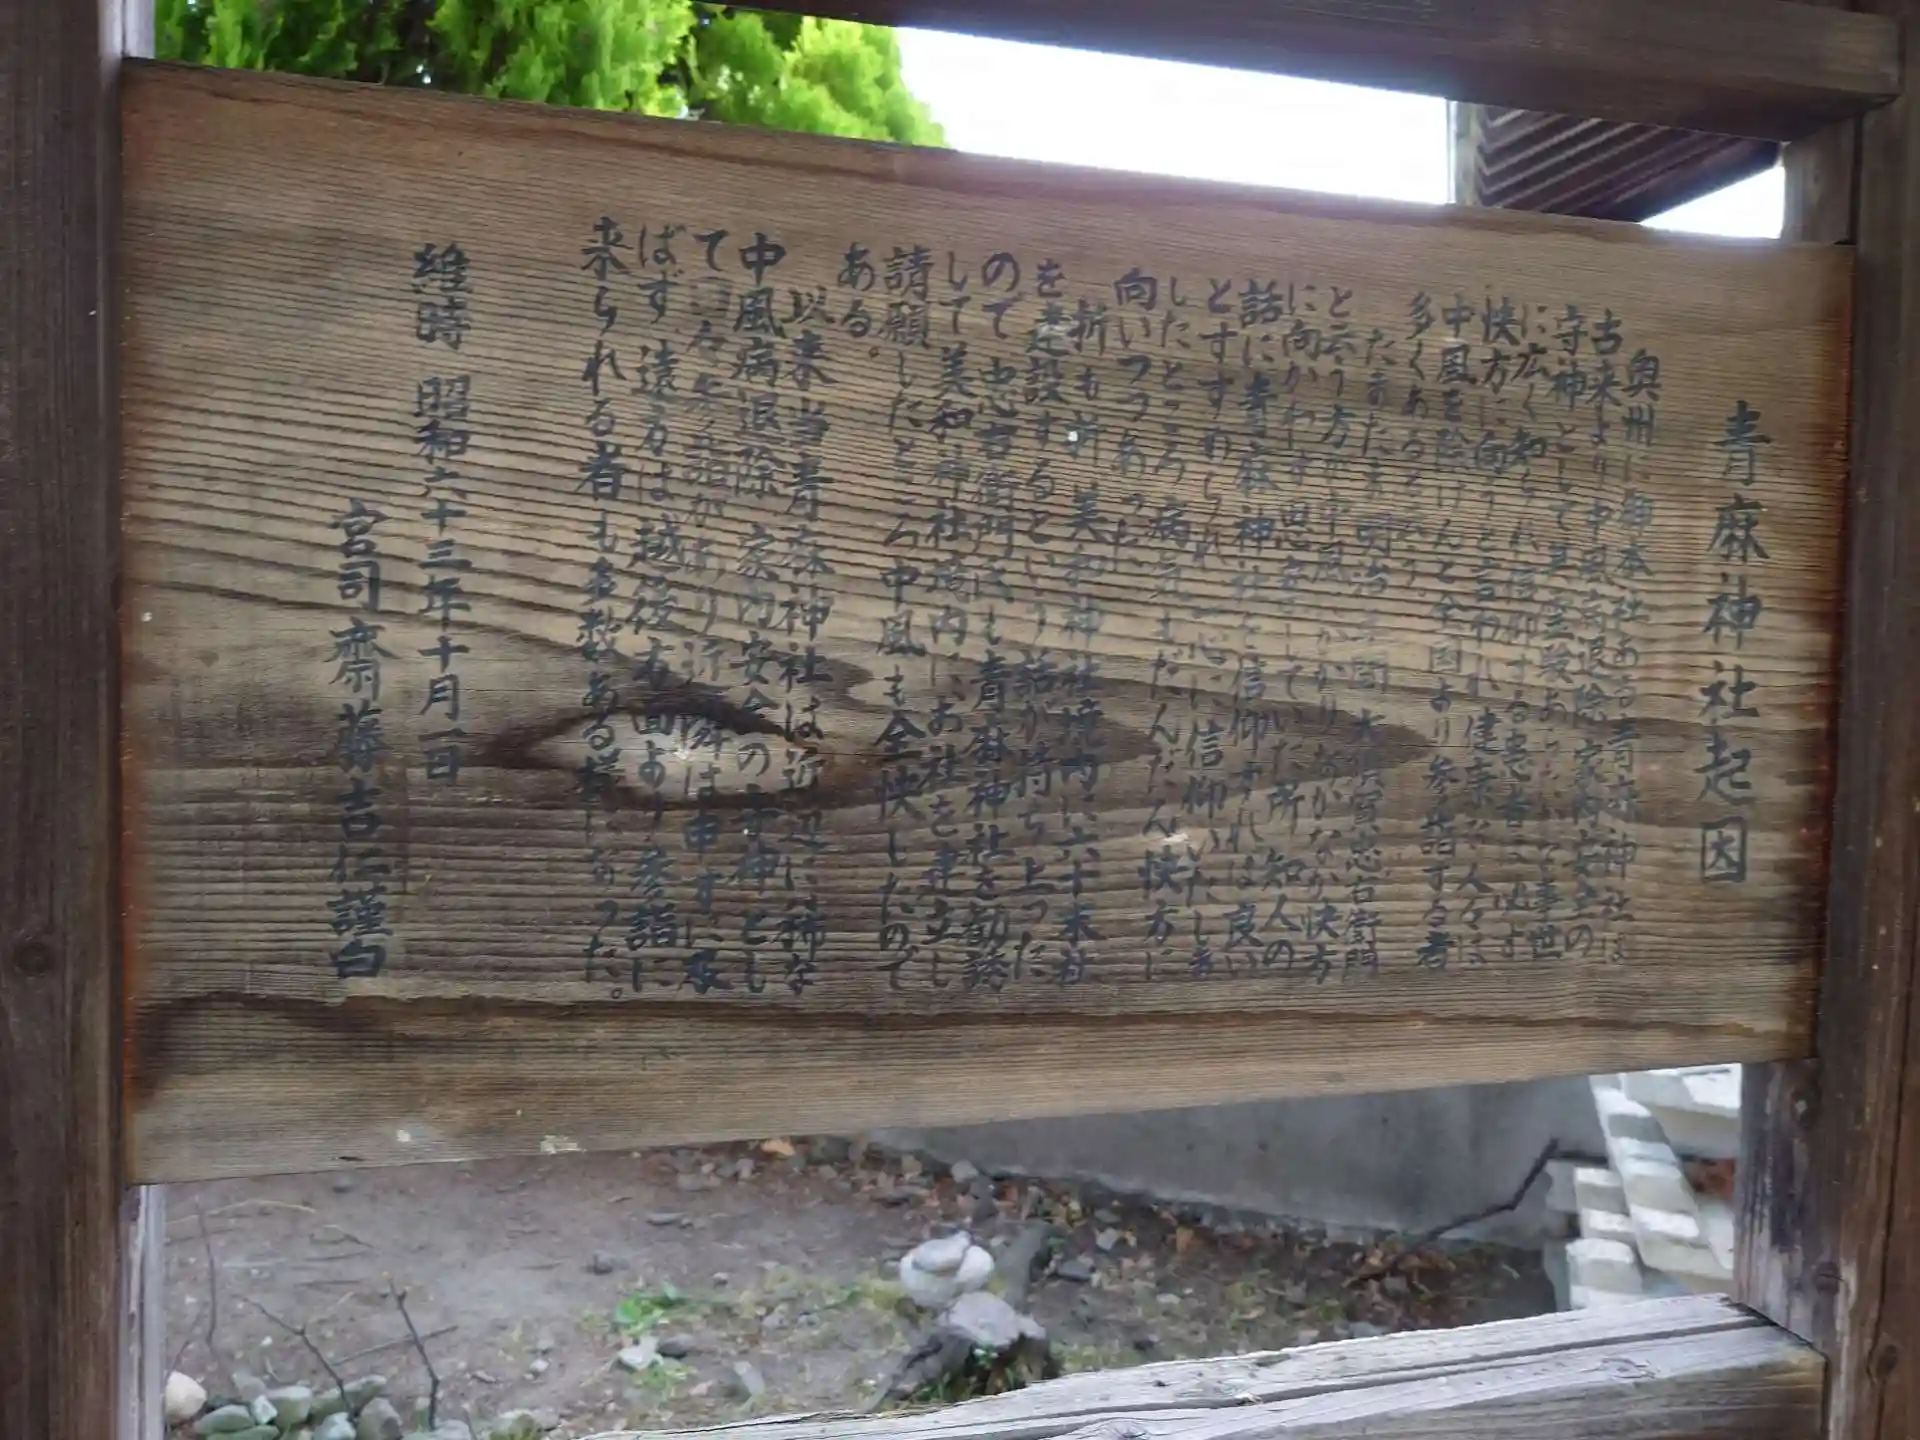 青麻神社起因
奥州に御本社ある青麻神社は
古来より中風病退除家内安全の
守神として其霊験あらたかで事世
に広く知られ信仰する患者は必ず
快方に向うと言われ健康な人々は
中風を除けんと全国より参詣する者
多くあると云う。
たまたま明治の間忠右衛門
と云う方が中風にかかりなかなか快方
に向かわず思案していた所知人の
話に青麻神社を信仰すれば良い
とすすめられ一心に信仰いたしま
したところ病気もだんだん快方に
向いつつあった。
折も折美和神社境内に六十末社
を建設するという話が持ち上った
ので忠右衛門氏も青麻神社を勧請
して美和神社境内にお社を建立し
請願したところ中風も全快したので
ある。
以来当青麻神社は近辺には稀な
中風病退除家内安全の守神とし
て々参詣があり近隣は申すに及
ばず遠方は越後方面より参詣に
来られる者も多数ある様になった。
維時 昭和六十三年十月一日
宮司 齋藤吉仁謹白